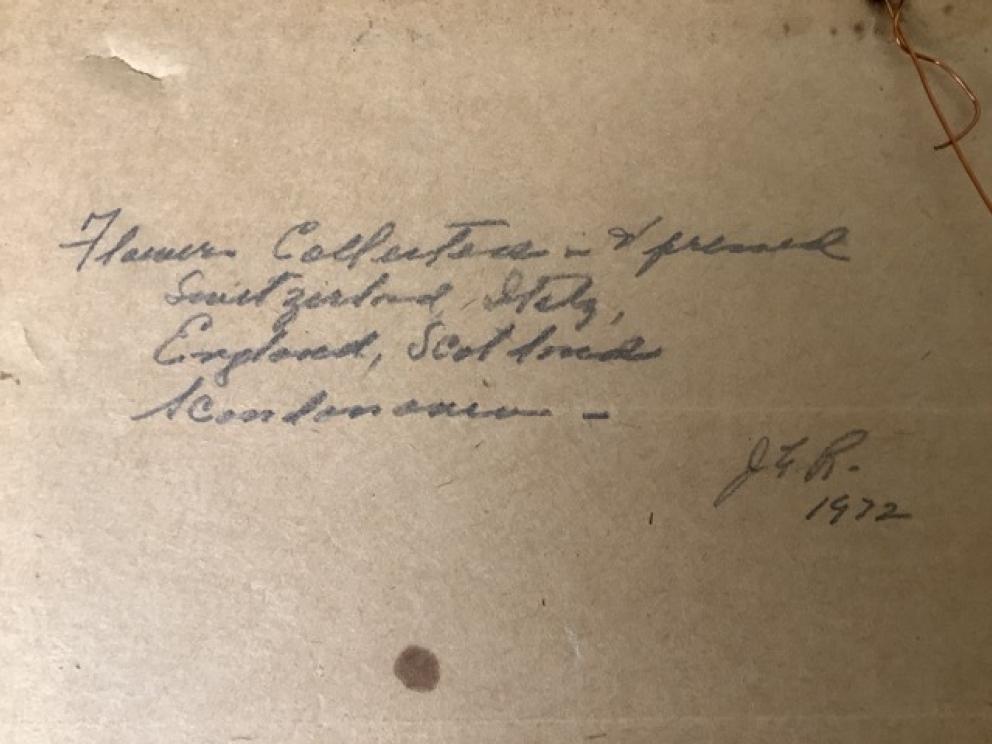 Flowers Collected - & pressed
Switzerland, Italy,
England, Scotland
Scandanavia -
J G R.
1972